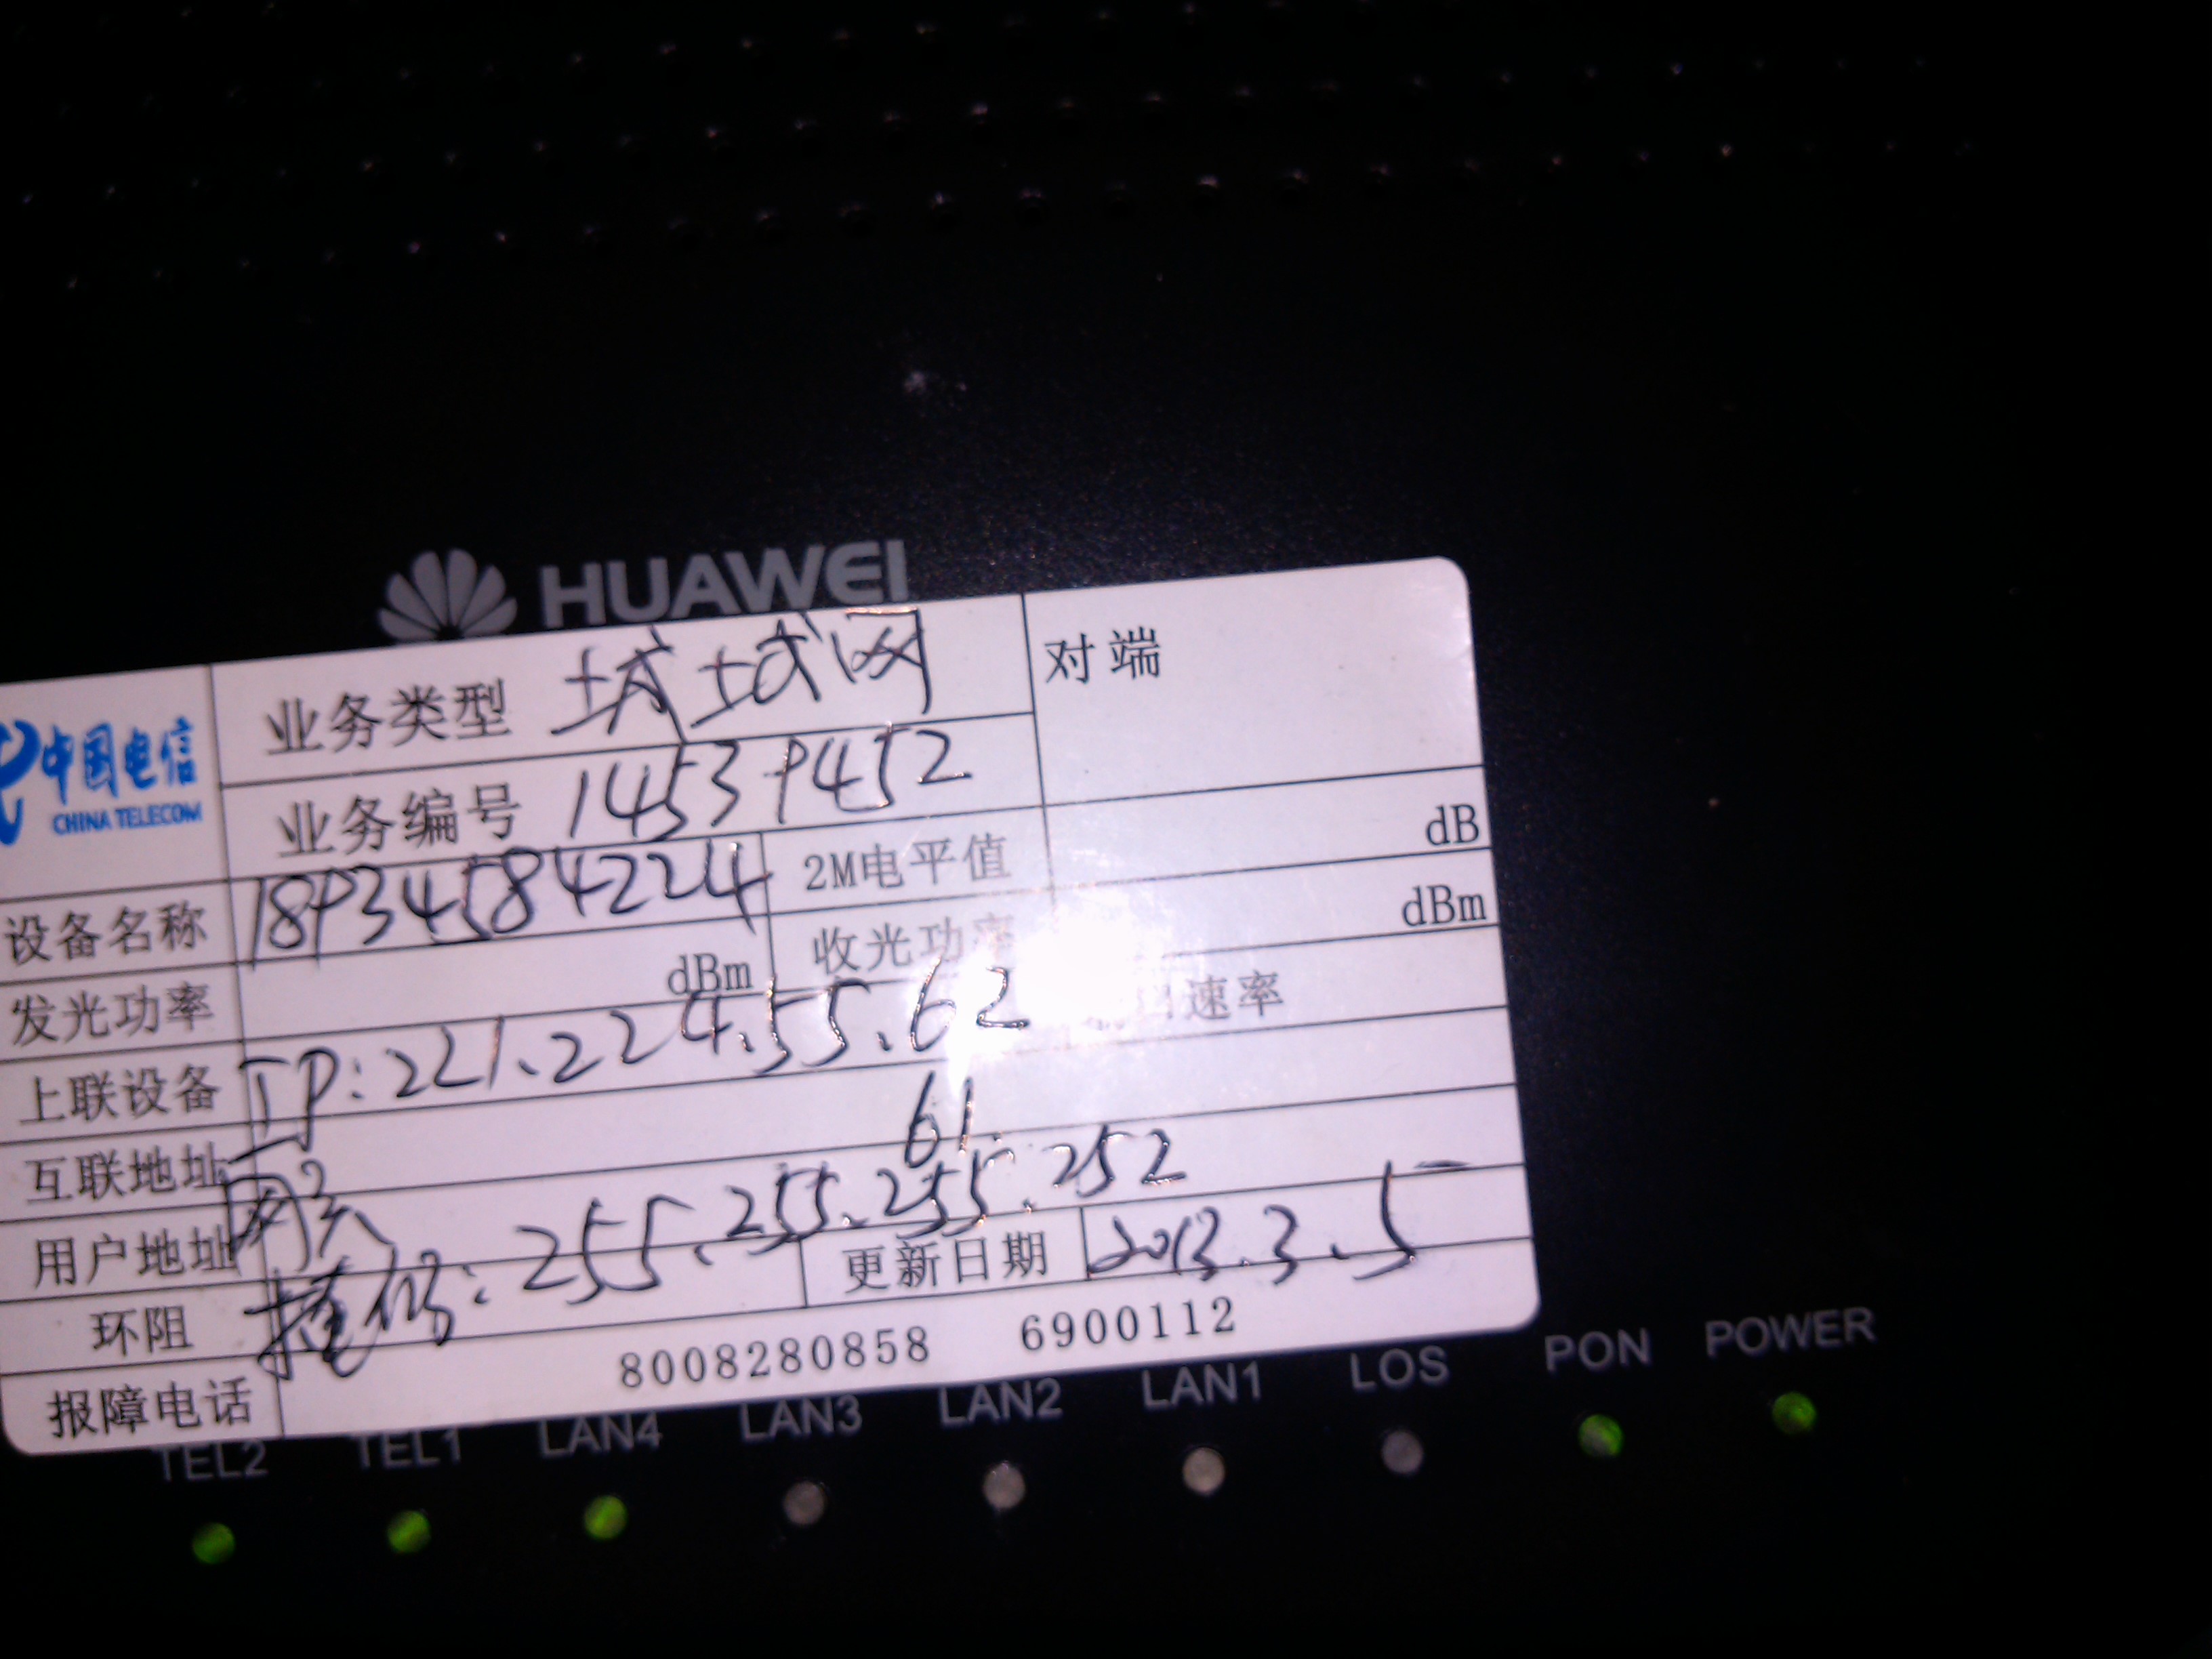 HUAWEI
中国电信
CHINA TELECOM
业务类型 城域网
对端
业务编号 14539452
设备名称 18934584224 2M电平值 dB
发光功率 dBm 收光功率 dBm
上联设备 IP:221.224.55.62 速率
互联地址 61
用户地址 网关
环阻 掩码:255.255.255.252 更新日期 2013.3.5
报障电话 8008280858 6900112
TEL2 TEL1 LAN4 LAN3 LAN2 LAN1 LOS PON POWER